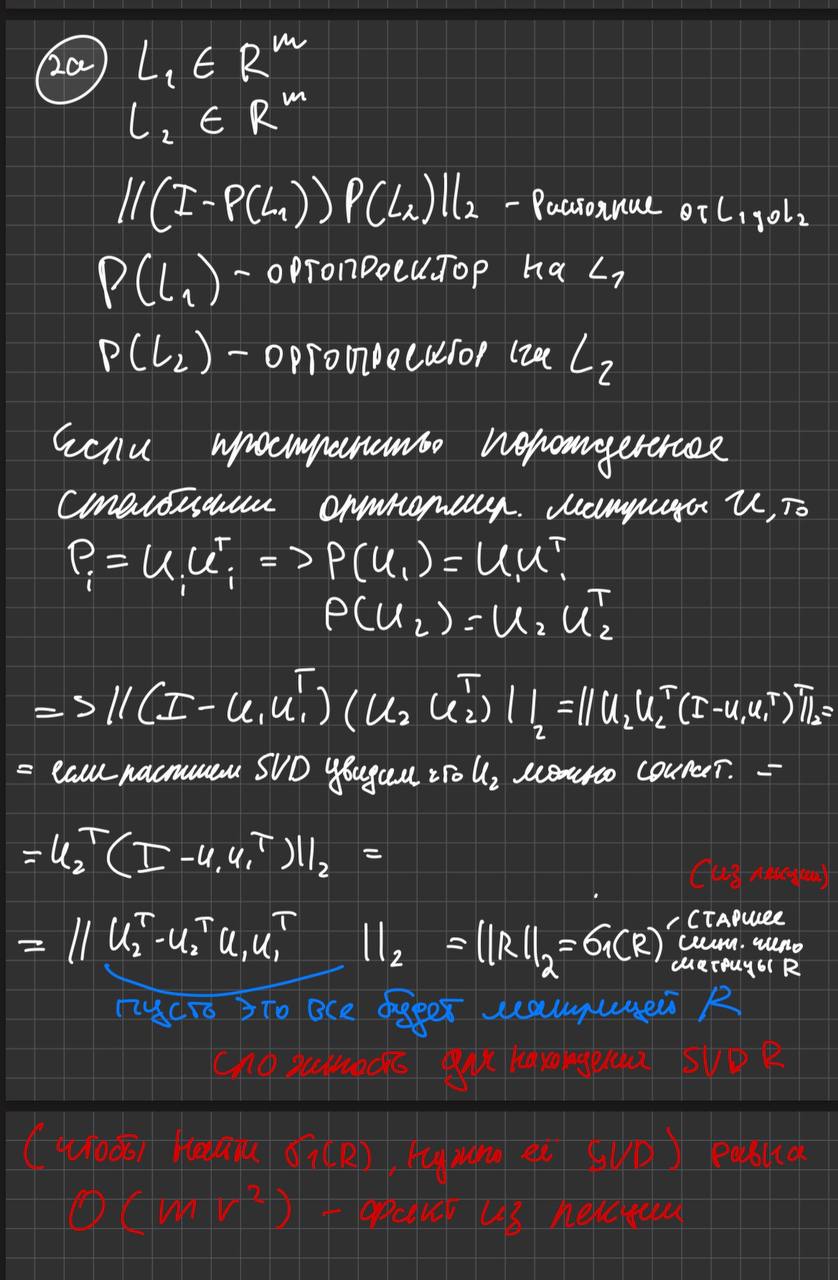 2a L₁ ∈ R^m
L₂ ∈ R^m
||(I-P(L₁))P(L₂)||₂ - Растояние от L₁ до L₂
P(L₁) - ортопроектор на L₁
P(L₂) - ортопроектор на L₂
Если пространство порожденное
столбцами ортнормир. матрицы U, то
P_i = U_i U_i^T => P(U₁) = U₁U₁^T
P(U₂) = U₂ U₂^T
=> ||(I - U₁U₁^T)(U₂ U₂^T)||₂ = ||U₂U₂^T(I-U₁U₁^T)^T||₂ =
= если распишем SVD увидим что U₂ можно сократ. =
= U₂^T(I - U₁U₁^T)||₂ =
(из лекции)
= || U₂^T - U₂^T U₁U₁^T ||₂ = ||R||₂ = σ₁(R) старшее
синг. число
матрицы R
пусть это все будет матрицей R
сложность для нахождения SVD R
(чтобы найти σ₁(R), нужно её SVD) равна
O(m r²) - факт из лекции